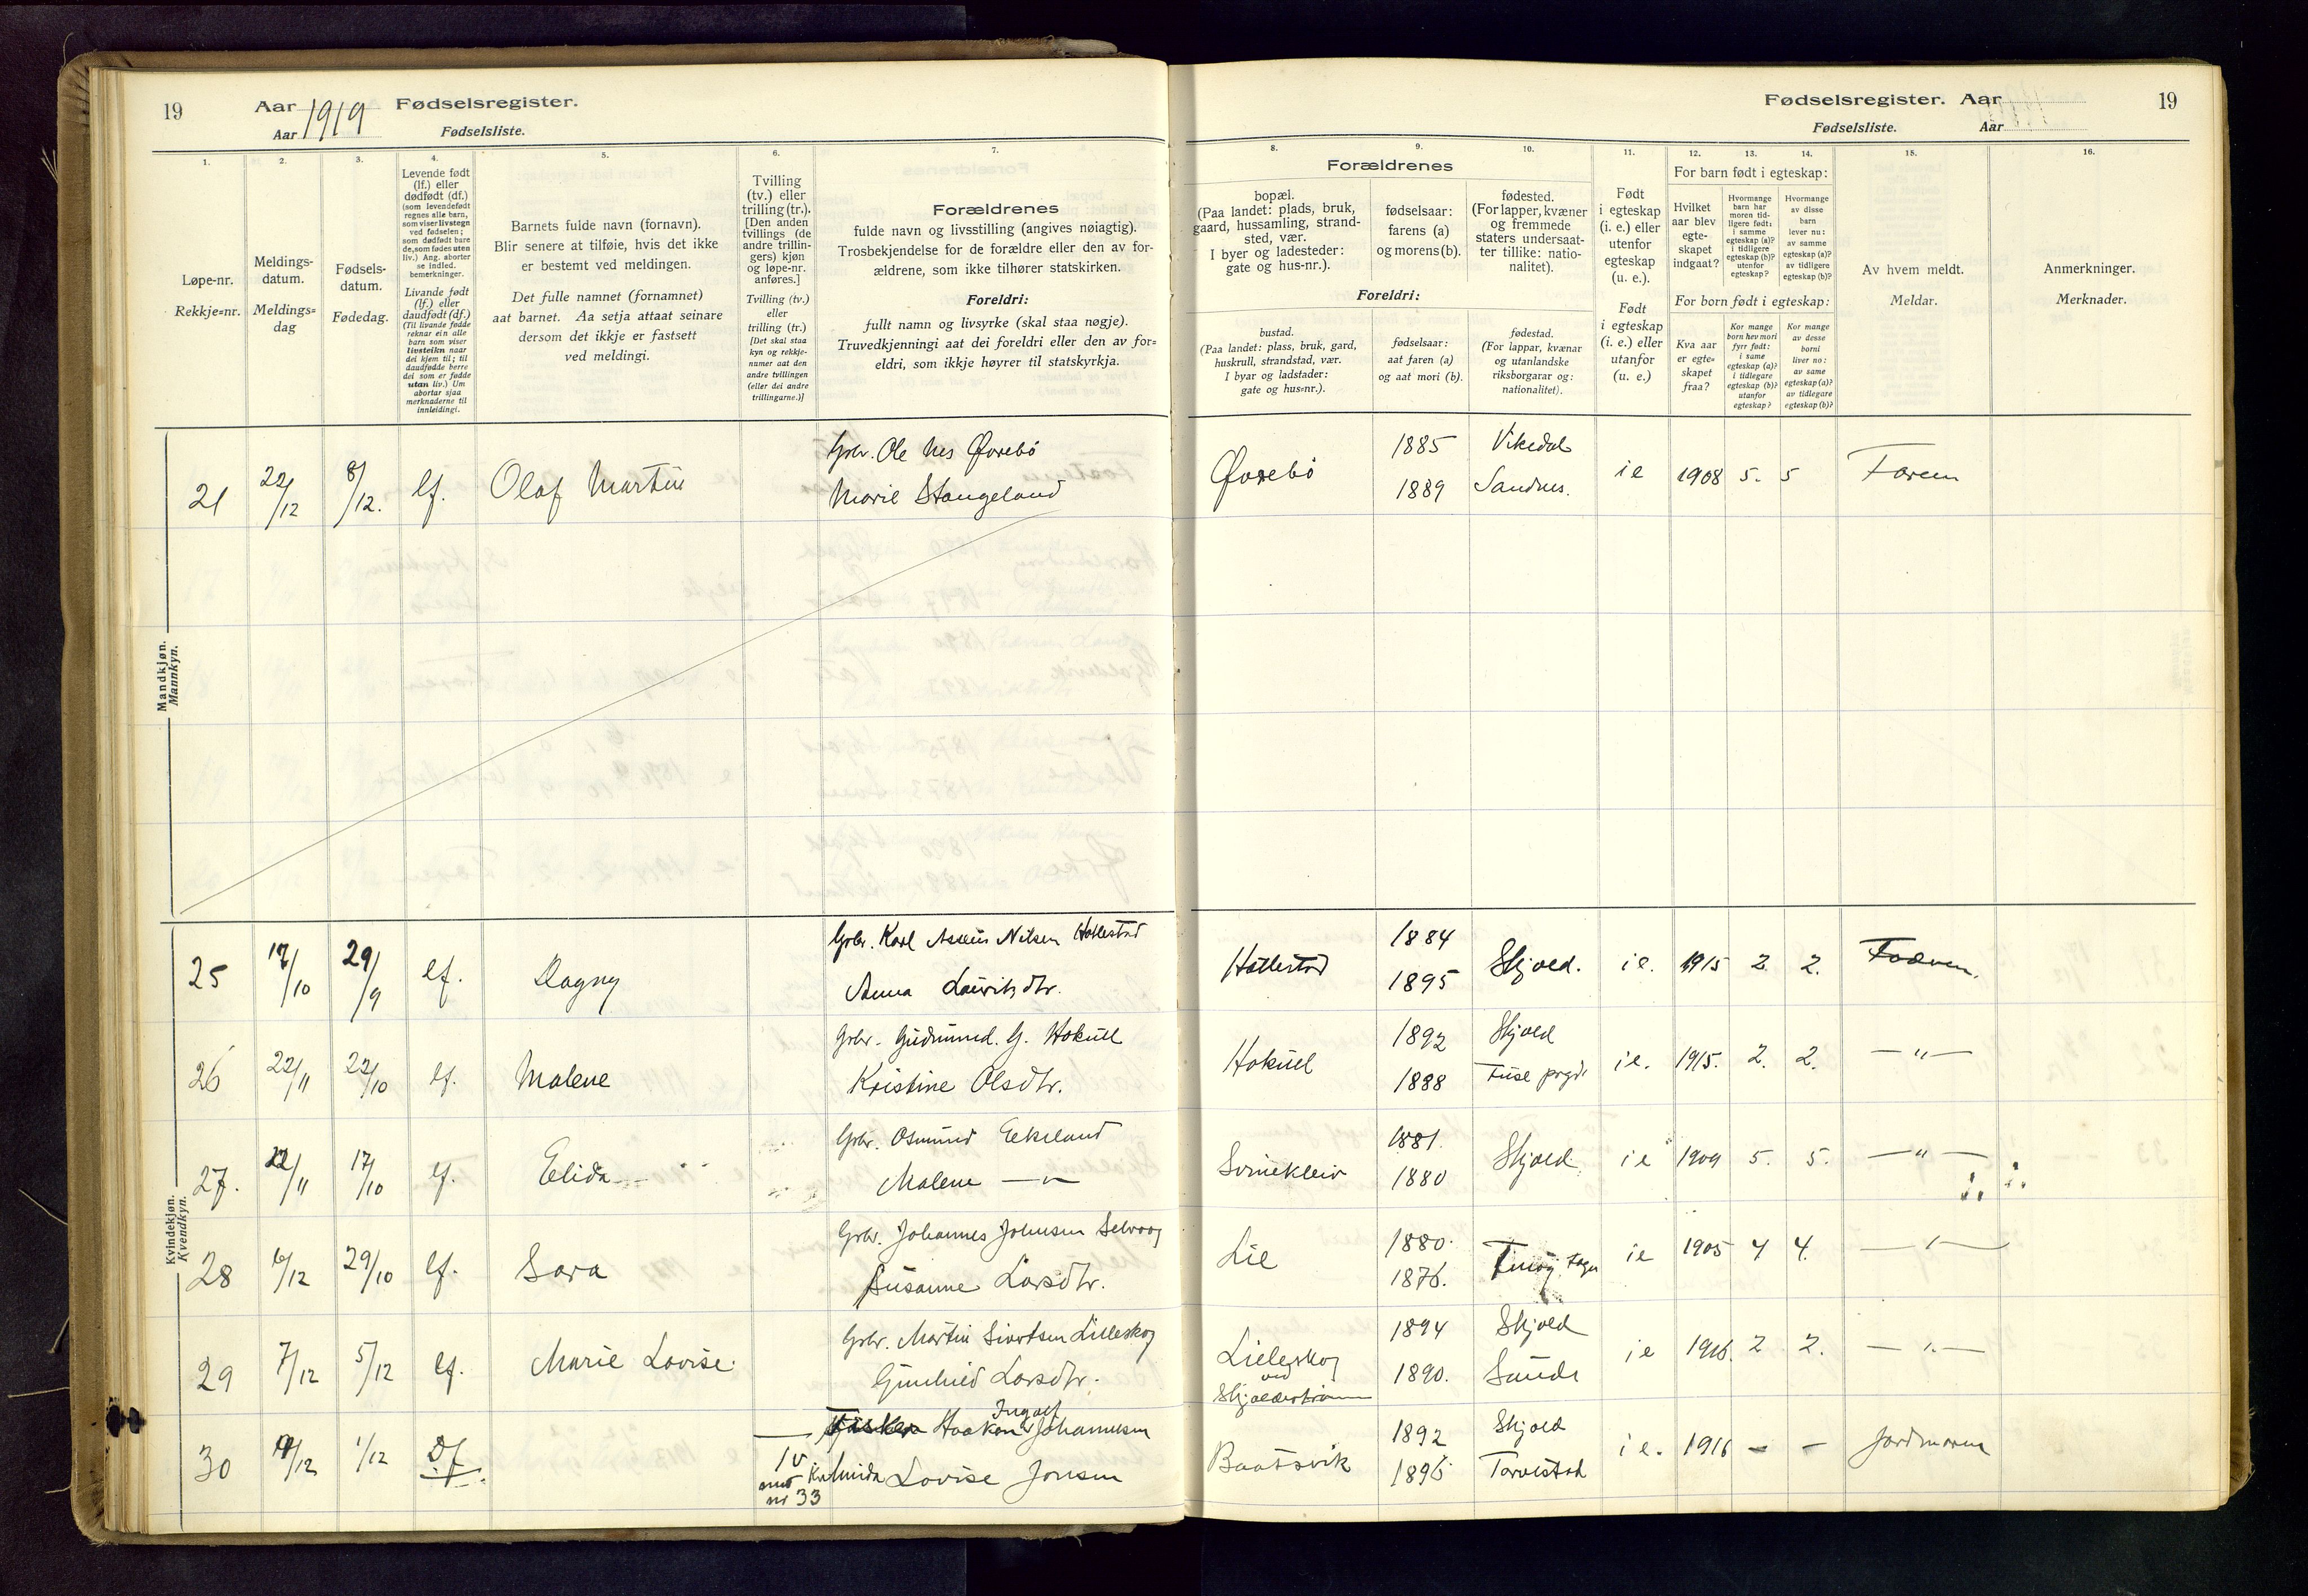 19 Aar 1919 Fødselsregister.
Aar Fødselsliste.
Fødselsregister. Aar 19
Fødselsliste. Aar
1. 2. 3. 4. 5. 6. 7.
Løpe-nr.
Rekkje=nr.
Meldings-
datum.
Meldings=
dag
Fødsels-
datum.
Fødedag.
Levende født
(lf.) eller
dødfødt (df.)
(som levendefødt
regnes alle barn,
som viser livstegn
ved fødselen;
som dødfødt bare
de, som fødes uten
liv.) Ang. aborter
se indled.
bemerkninger.
Livande født
(lf.) eller
daudfødt (df.)
(Til livande fødde
reknar ein alle
barn som viser
livsteikn naar
dei kjem til; til
daudfødde berre
dei som er fødde
utan liv.) Um
abortar sjaa
merknaderne til
innleidingi.
Barnets fulde navn (fornavn).
Blir senere at tilføie, hvis det ikke
er bestemt ved meldingen.
Det fulle namnet (fornamnet)
aat barnet. Aa setja attaat seinare
dersom det ikkje er fastsett
ved meldingi.
Tvilling
(tv.) eller
trilling (tr.).
[Den anden
tvillings (de
andre trillin-
gers) kjøn
og løpe-nr.
anføres.]
Tvilling (tv.)
eller
trilling (tr.)
[Det skal staa
kyn og rekkje-
numer aat den
andre tvillingen
(eller dei andre
trillingarne.)]
Forældrenes
fulde navn og livsstilling (angives nøiagtig).
Trosbekjendelse for de forældre eller den av for-
ældrene, som ikke tilhører statskirken.
Foreldri:
fullt namn og livsyrke (skal staa nøgje).
Truvedkjenningi aat dei foreldri eller den av for=
eldri, som ikkje høyrer til statskyrkja.
8. 9. 10. 11. 12. 13. 14. 15. 16.
Forældrenes
bopæl.
(Paa landet: plads, bruk,
gaard, hussamling, strand-
sted, vær.
I byer og ladesteder:
gate og hus-nr.).
fødselsaar:
farens (a)
og morens (b).
fødested.
(For lapper, kvæner
og fremmede
staters undersaat-
ter tillike: natio-
nalitet).
Foreldri:
bustad.
(Paa landet: plass, bruk, gard,
huskrull, strandstad, vær.
I byar og ladstader:
gate og hus=nr.).
fødselsaar:
aat faren (a)
og aat mori (b).
fødestad.
(For lappar, kvænar
og utanlandske
riksborgarar og:
nationalitet).
Født
i egteskap
(i. e.) eller
utenfor
egteskap
(u. e.).
Født
i egteskap
(i. e.) eller
utanfor
(u. e.)
For barn født i egteskap:
Hvilket
aar blev
egte-
skapet
indgaat?
Hvormange
barn har
moren tid-
ligere født:
i samme
egteskap (a)?
i tidligere
egteskap (b)?
utenfor
egteskap?
Hvormange
av disse
barn
lever nu:
av samme
egteskap (a)?
av tidligere
egteskap (b)?
For born født i egteskap:
Kva aar
er egte=
skapet
fraa?
Kor mange
born hev mori
fyrr født:
i same
egteskap (a)?
i tidlegare
egteskap (b)?
utanfor
egteskap?
Kor mange
av desse
borni
liver no:
av same
egteskap (a)?
av tidlegare
egteskap (b)?
Av hvem meldt.
Meldar.
Anmerkninger.
Merknader.
Mandkjøn.
Mannkyn.
21 22/12 8/12. lf. Olaf Martin Gbr. Ole Nes Øvrebö
Marie Stangeland
Øvrebö 1885 1889 Vikedal Sandnes. i e 1908 5. 5 Faren
Kvindekjøn.
Kvendkyn.
25 17/10 29/9 lf. Dagny Gbr. Karl Nilsen Hollestad
Anna Lauritsdtr.
Hollestad 1884 1895 Skjold. i e. 1915 2. 2. Faderen.
26 22/11 22/10 lf. Malene Gbr. Gudmund. G. Hokull
Kristine Olsdtr.
Hokull 1892 1888 Skjold Fuse prgd. i e. 1915. 2. 2. — " —
27. 22/11 17/10 lf. Elida Gbr. Osmund Eikeland
Malene — " —
Svinekleiv 1881. 1880 Skjold i e 1909 5. 5. — " —
28 6/12 29/10 lf. Sara Gbr. Johannes Johnsen Selvaag
Susanne Larsdtr.
Lie 1880. 1876. i e 1905 4 4. — " —
29 7/12 5/12 lf. Marie Lovise. Gbr. Martin Sivertsen Lilleskog
Gunhild Larsdtr.
Lilleskog
ved
Skjoldestraumen
1894 1890. Skjold Sande i e 1916. 2 2. — " —
30 19/12 1/12 Df. tv
med kv
nr 33
Fisker Haakon Ingolf Johannesen
Almida Lovise Jonsen
Baatsvik 1892 1896 Skjold Torvestad i e. 1916 – – Jordmoren